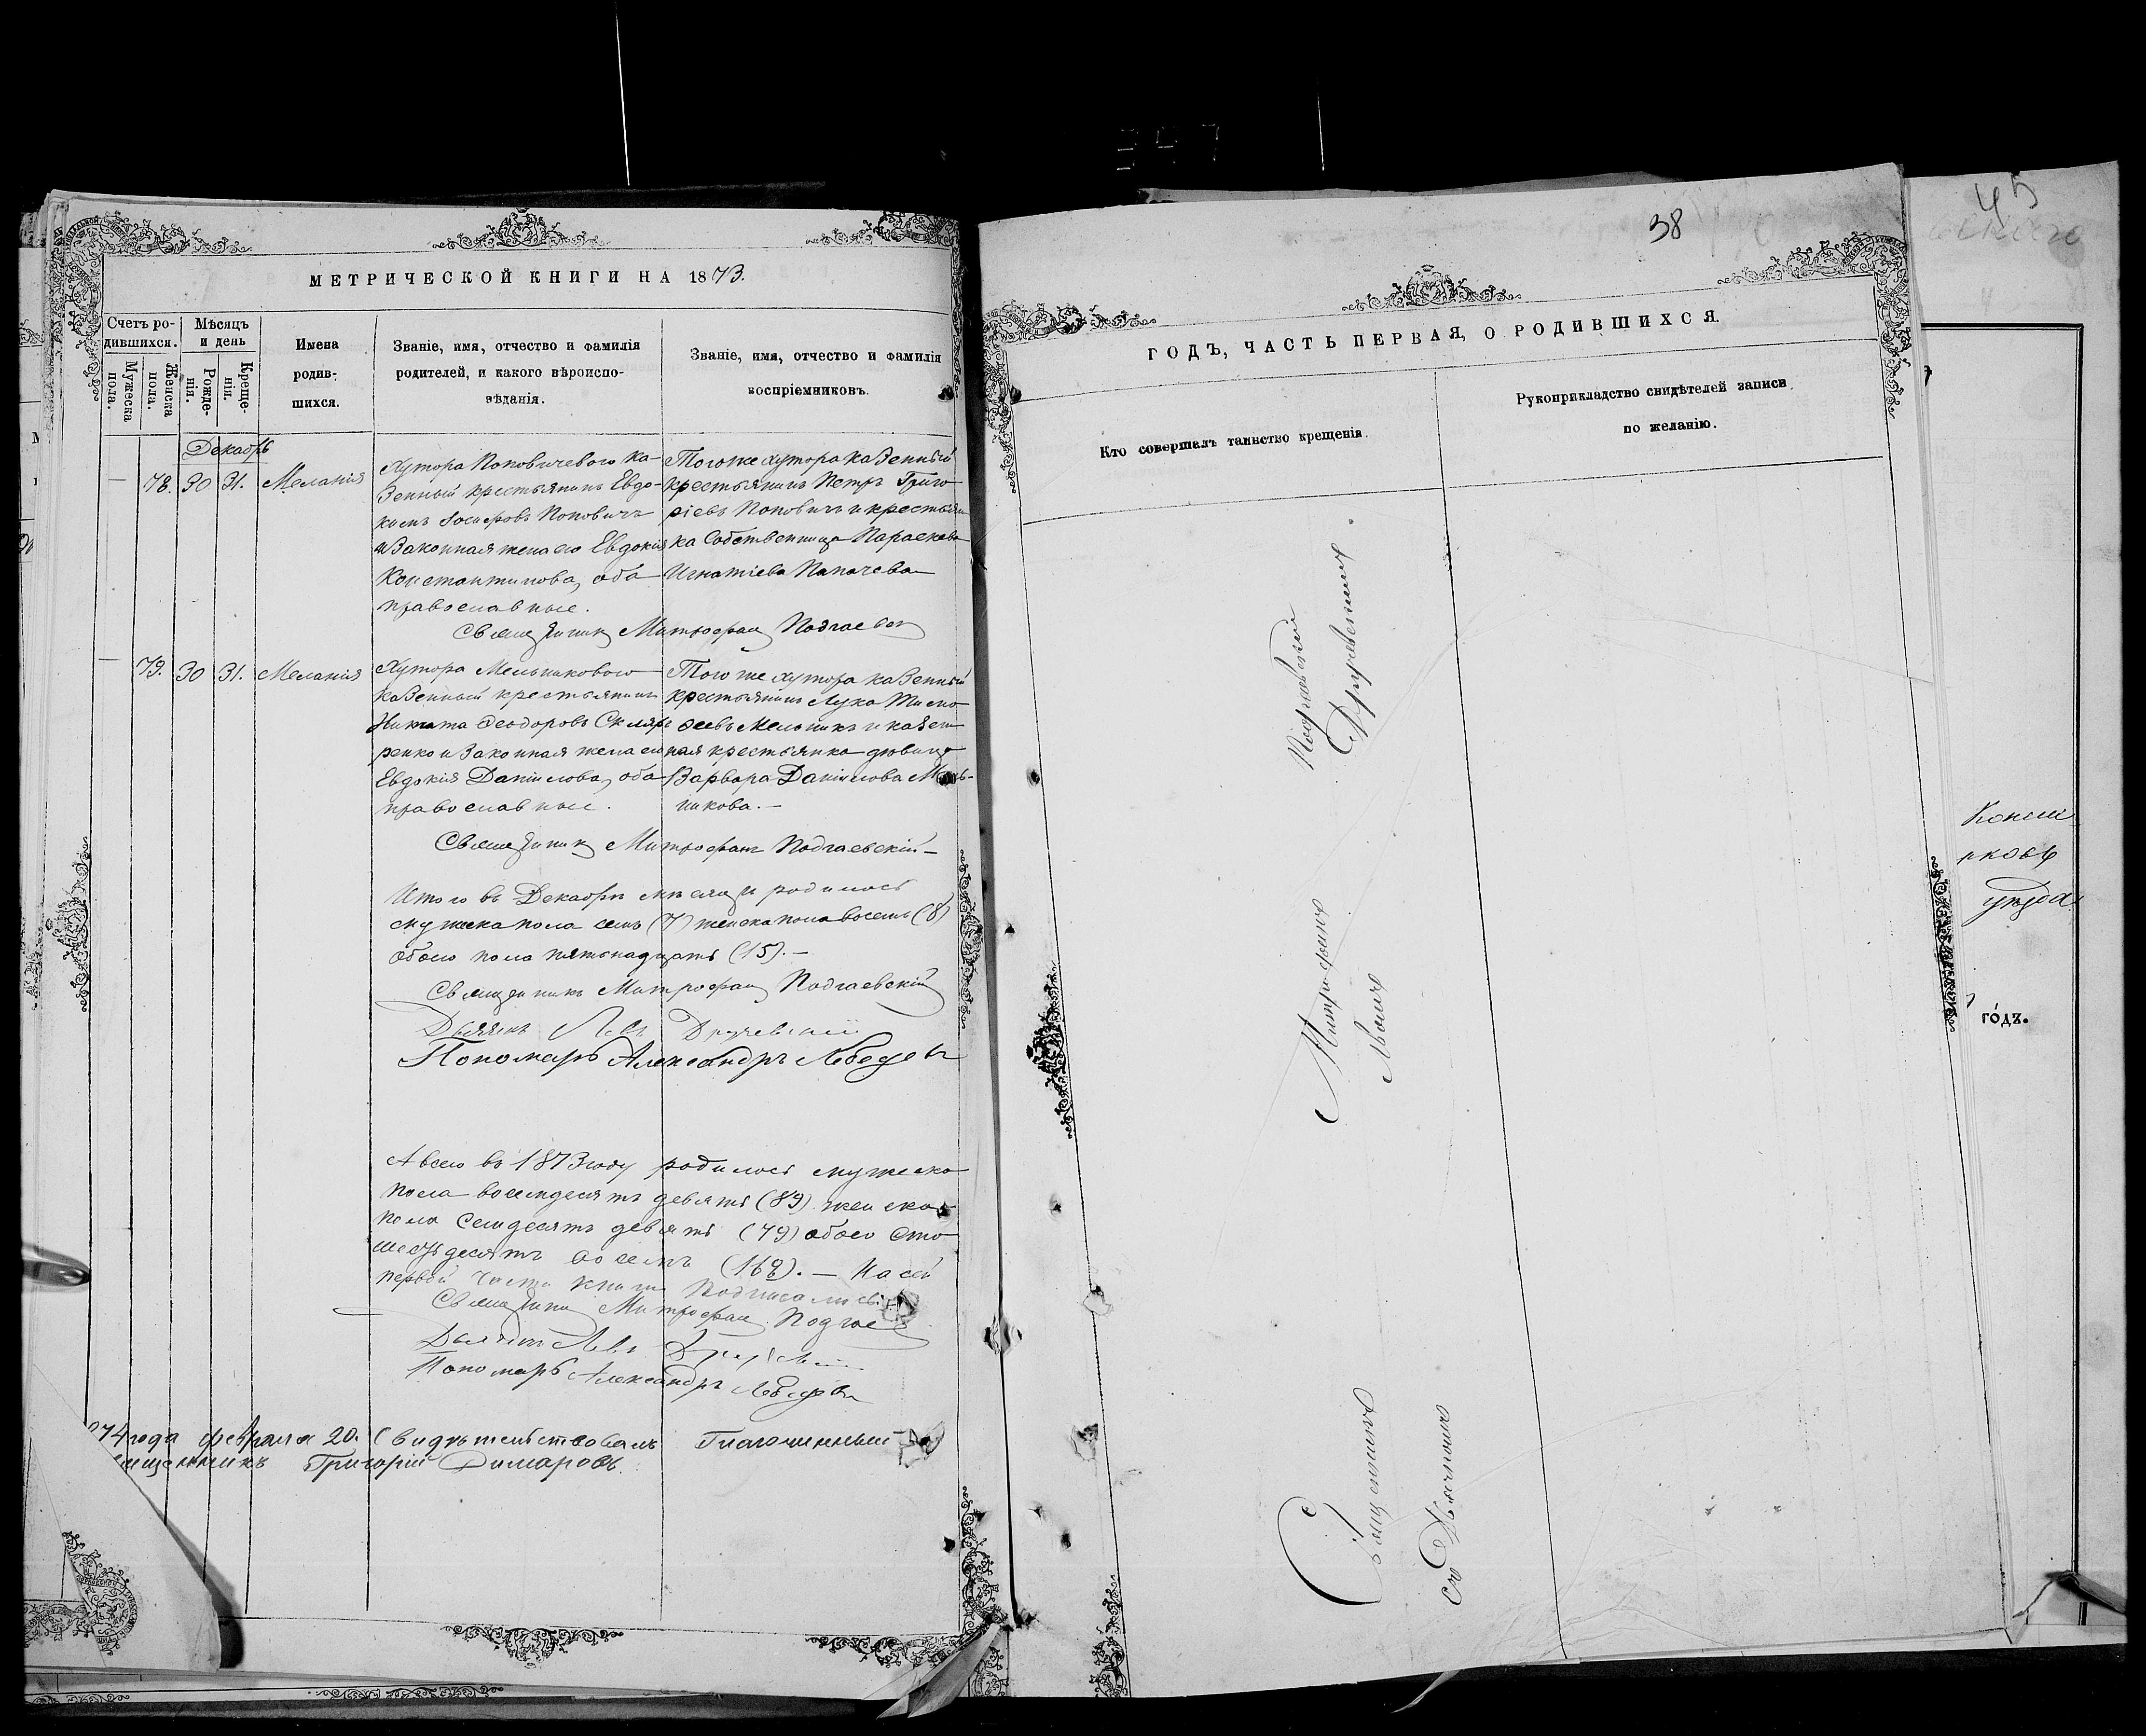 МЕТРИЧЕСКОЙ КНИГИ НА 1873.
Счетъ ро-
дившихся.
Мужеска
пола.
Женска
пола.
Мѣсяцъ
и день
Рожде-
нія.
Креще-
нія.
Имена
родив-
шихся.
Званіе, имя, отчество и фамилія
родителей, и какого вѣроиспо-
вѣданія.
Званіе, имя, отчество и фамилія
воспріемниковъ.
Декабрь
— 78. 30 31. Меланія
Хутора Поповичевого ка-
зенный крестьянинъ Евдо-
кимъ Іосифовъ Поповичъ
и законная жена его Евдокія
Константинова, оба
православные.
Тогоже хутора казенный
крестьянинъ Петръ Григо
ріевъ Поповичъ и крестьян
ка собственница Параскева
Игнатіева
Священникъ Митрофанъ Подгаевскій
— 79. 30 31. Меланія
Хутора Мельникового
казенный крестьянинъ
Никита Феодоровъ Скляре
ренко и законная жена его
Евдокія Даніилова, оба
православные.
Того же хутора казенный
крестьянинъ Лука Тимо
феевъ Мельникъ и казен
ная крестьянка девица
Варвара Даніилова Мель-
никова. —
Священникъ Митрофанъ Подгаевскій —
Итого въ Декабрѣ месяцѣ родилось
мужеска пола семь (7) женска пола восемь (8)
обоего пола пятьнадцать (15). —
Священникъ Митрофанъ Подгаевскій
Дьячекъ Левъ
Пономарь Александръ Лебедевъ
А всего въ 1873 году родилось мужеска
пола восемдесятъ девять (89) женска
пола семдесятъ девять (79) обоего сто
шесдесятъ восемь (168). — На сей
первой части книги подписались:
Священникъ Митрофанъ
Дьячекъ Левъ
Пономарь Александръ Лебедевъ
874 года февраля 20. Свидѣтельствовалъ Благочинный
священникъ Григорій Димаровъ.
38
ГОДЪ, ЧАСТЬ ПЕРВАЯ, О РОДИВШИХСЯ.
Кто совершалъ таинство крещенія.
Рукоприкладство свидѣтелей записи
по желанію.
Священникъ Митрофанъ Подгаевскій
съ Дьячкомъ Львомъ
45
уѣзда
годъ.